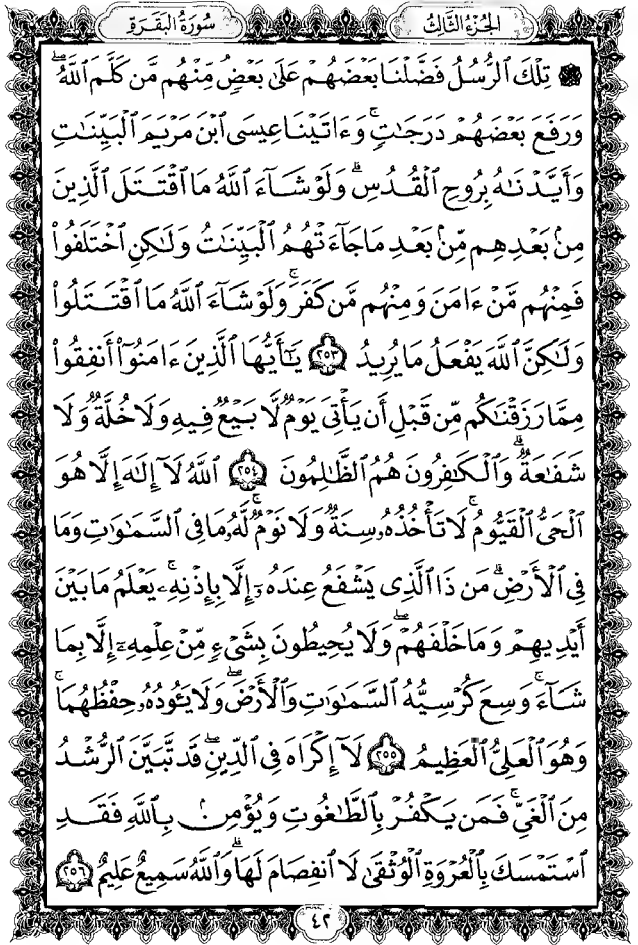 الجُزْءُ الثَّالِثُ
سُورَةُ البَقَرَةِ
۞ تِلْكَ ٱلرُّسُلُ فَضَّلْنَا بَعْضَهُمْ عَلَىٰ بَعْضٍۘ مِّنْهُم مَّن كَلَّمَ ٱللَّهُۖ
وَرَفَعَ بَعْضَهُمْ دَرَجَٰتٍۚ وَءَاتَيْنَا عِيسَى ٱبْنَ مَرْيَمَ ٱلْبَيِّنَٰتِ
وَأَيَّدْنَٰهُ بِرُوحِ ٱلْقُدُسِۗ وَلَوْ شَآءَ ٱللَّهُ مَا ٱقْتَتَلَ ٱلَّذِينَ
مِنۢ بَعْدِهِم مِّنۢ بَعْدِ مَا جَآءَتْهُمُ ٱلْبَيِّنَٰتُ وَلَٰكِنِ ٱخْتَلَفُوا۟
فَمِنْهُم مَّنْ ءَامَنَ وَمِنْهُم مَّن كَفَرَۚ وَلَوْ شَآءَ ٱللَّهُ مَا ٱقْتَتَلُوا۟
وَلَٰكِنَّ ٱللَّهَ يَفْعَلُ مَا يُرِيدُ ٢٥٣ يَٰٓأَيُّهَا ٱلَّذِينَ ءَامَنُوٓا۟ أَنفِقُوا۟
مِمَّا رَزَقْنَٰكُم مِّن قَبْلِ أَن يَأْتِىَ يَوْمٌ لَّا بَيْعٌ فِيهِ وَلَا خُلَّةٌ وَلَا
شَفَٰعَةٌۗ وَٱلْكَٰفِرُونَ هُمُ ٱلظَّٰلِمُونَ ٢٥٤ ٱللَّهُ لَآ إِلَٰهَ إِلَّا هُوَ
ٱلْحَىُّ ٱلْقَيُّومُۚ لَا تَأْخُذُهُۥ سِنَةٌ وَلَا نَوْمٌۚ لَّهُۥ مَا فِى ٱلسَّمَٰوَٰتِ وَمَا
فِى ٱلْأَرْضِۗ مَن ذَا ٱلَّذِى يَشْفَعُ عِندَهُۥٓ إِلَّا بِإِذْنِهِۦۚ يَعْلَمُ مَا بَيْنَ
أَيْدِيهِمْ وَمَا خَلْفَهُمْۖ وَلَا يُحِيطُونَ بِشَىْءٍ مِّنْ عِلْمِهِۦٓ إِلَّا بِمَا
شَآءَۚ وَسِعَ كُرْسِيُّهُ ٱلسَّمَٰوَٰتِ وَٱلْأَرْضَۖ وَلَا يَـُٔودُهُۥ حِفْظُهُمَاۚ
وَهُوَ ٱلْعَلِىُّ ٱلْعَظِيمُ ٢٥٥ لَآ إِكْرَاهَ فِى ٱلدِّينِۖ قَد تَّبَيَّنَ ٱلرُّشْدُ
مِنَ ٱلْغَىِّۚ فَمَن يَكْفُرْ بِٱلطَّٰغُوتِ وَيُؤْمِنۢ بِٱللَّهِ فَقَدِ
ٱسْتَمْسَكَ بِٱلْعُرْوَةِ ٱلْوُثْقَىٰ لَا ٱنفِصَامَ لَهَاۗ وَٱللَّهُ سَمِيعٌ عَلِيمٌ ٢٥٦
٤٢